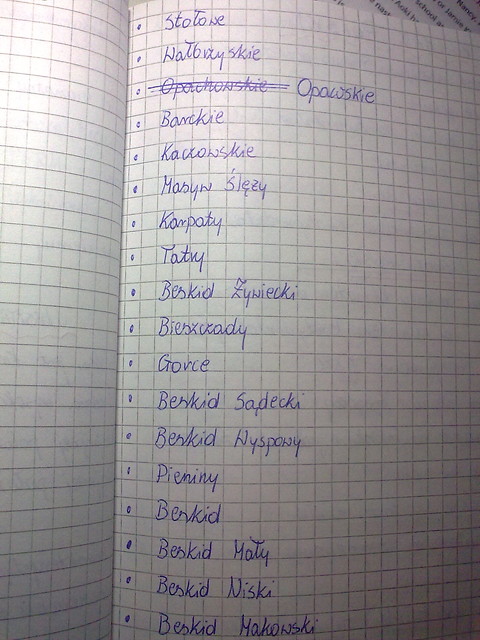 Stołowe
Wałbrzyskie
Opachowskie Opawskie
Barckie
Kaczowskie
Masyw Ślęży
Karpaty
Tatry
Beskid Żywiecki
Bieszczady
Gorce
Beskid Sądecki
Beskid Wyspowy
Pieniny
Beskid
Beskid Mały
Beskid Niski
Beskid Makowski